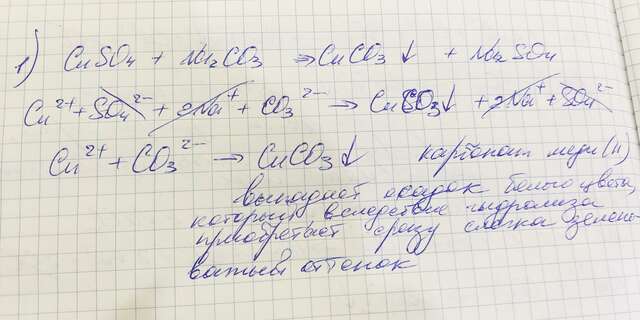 1) CuSO4 + Na2CO3 => CuCO3↓ + Na2SO4
Cu2+ + SO4 2- + 2Na+ + CO3 2- → CuCO3↓ + 2Na+ + SO4 2-
Cu2+ + CO3 2- → CuCO3↓ карбонат меди (II)
выпадает осадок белого цвета,
который вследствие гидролиза
приобретает сразу слегка зелено-
ватый оттенок